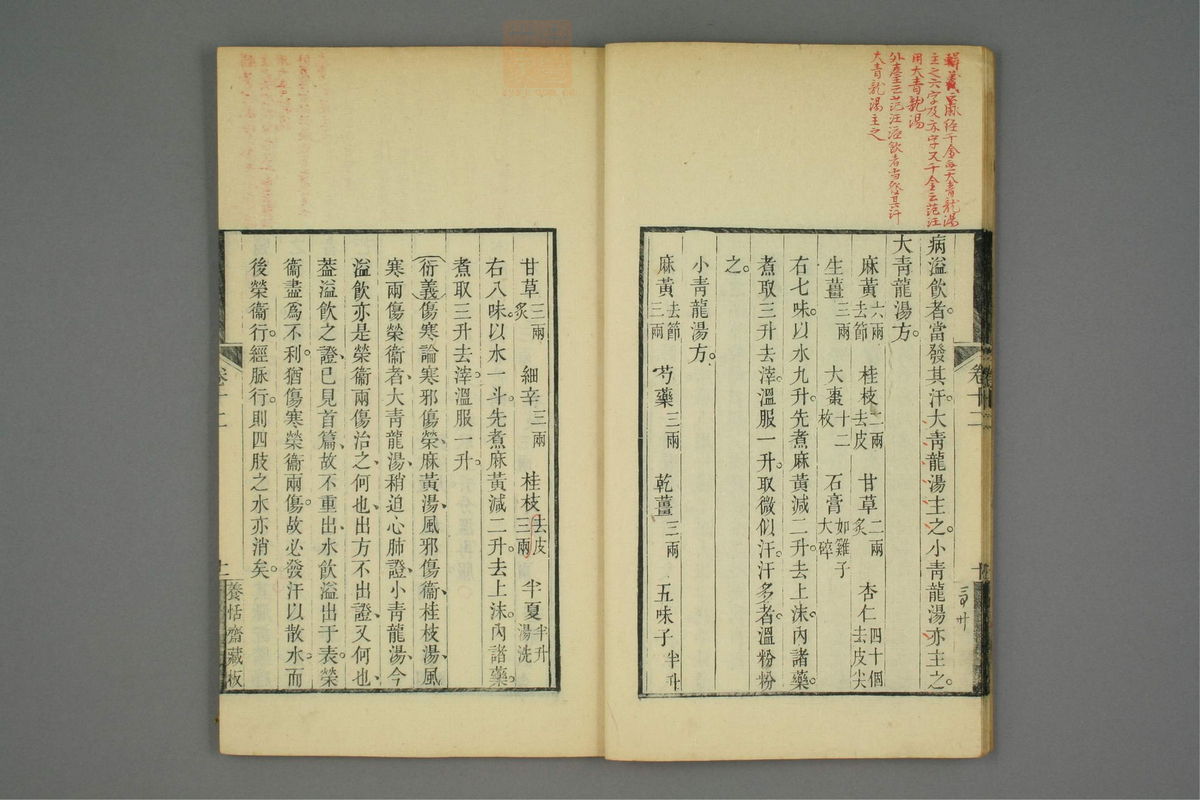 輯義云脉經千金無大青龍湯
主之六字及亦字又千金云范汪
用大青龍湯
外臺云范汪溢飲者當發其汗
大青龍湯主之
病溢飲者當發其汗大青龍湯主之小青龍湯亦主之
大青龍湯方
麻黃六兩去節 桂枝二兩去皮 甘草二兩炙 杏仁四十個去皮尖
生薑三兩 大棗十二枚 石膏如雞子大碎
右七味以水九升先煮麻黃減二升去上沫內諸藥
煮取三升去滓溫服一升取微似汗汗多者溫粉粉
之
小青龍湯方
麻黃去節三兩 芍藥三兩 乾薑三兩 五味子半升
卷十二
十
甘草三兩炙 細辛三兩 桂枝去皮三兩 半夏半升湯洗
右八味以水一斗先煮麻黃減二升去上沫內諸藥
煮取三升去滓溫服一升
衍義傷寒論寒邪傷榮麻黃湯風邪傷衞桂枝湯風
寒兩傷榮衞者大青龍湯稍迫心肺證小青龍湯今
溢飲亦是榮衞兩傷治之何也出方不出證又何也
葢溢飲之證已見首篇故不重出水飲溢出于表榮
衞盡爲不利猶傷寒榮衞兩傷故必發汗以散水而
後榮衞行經脈行則四肢之水亦消矣
卷十二
養恬齋藏板